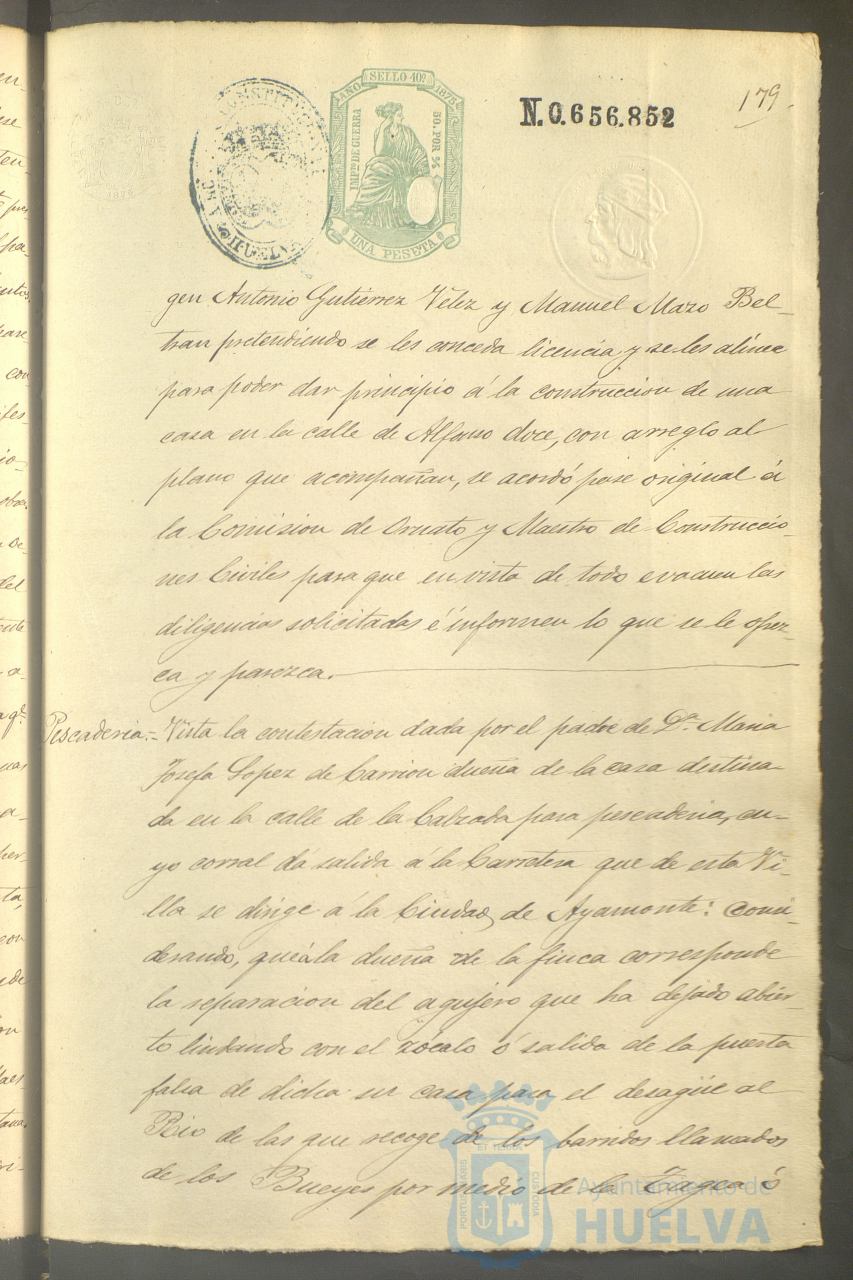 AÑO SELLO 10º 1875
IMPTO DE GUERRA
50. POR %
UNA PESETA
CONSTITUCIONAL
HUELVA
N. 0.656.852
179
gen Antonio Gutierrez Velez y Manuel Mazo Bel-
tran pretendiendo se les conceda licencia y se les alinee
para poder dar principio á la construccion de una
casa en la calle de Alfonso doce, con arreglo al
plano que acompañan, se acordó pase original á
la Comision de Ornato y Maestro de Construccio-
nes Civiles para que en vista de todo evacuen las
diligencias solicitadas é informen lo que se le ofrez-
ca y parezca.
Pescaderia.= Vista la contestacion dada por el padre de Dª Maria
Josefa Lopez de Carrion dueña de la casa destina-
da en la calle de la Calzada para pescaderia, cu-
yo corral dá salida á la Carretera que de esta Vi-
lla se dirige á la Ciudad de Ayamonte: Consi-
derando, que á la dueña de la finca corresponde
la reparacion del agujero que ha dejado abier-
to lindando con el zócalo ó salida de la puerta
falsa de dicha su casa para el desagüe al
Rio de las que recoge de los barridos llamados
de los Bueyes por medio de la Zagea ó
PORTUS MARIS ET TERRAE CUSTODIA
Ayuntamiento de
HUELVA